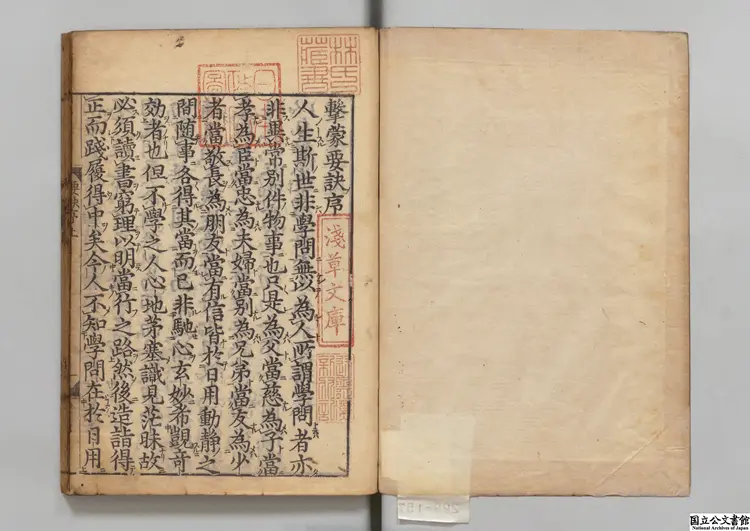 林氏藏書
日本政府圖書
擊蒙要訣序
淺草文庫
人生斯世非學問無以為人所謂學問者亦
非異常別件物事也只是為父當慈為子當
孝為臣當忠為夫婦當別為兄弟當友為少
者當敬長為朋友當有信皆於日用動靜之
間隨事各得其當而已非馳心玄妙希覬奇
効者也但不學之人心地茅塞識見茫昧故
必須讀書窮理以明當行之路然後造詣得
正而踐履得中矣今人不知學問在於日用
国立公文書館
National Archives of Japan